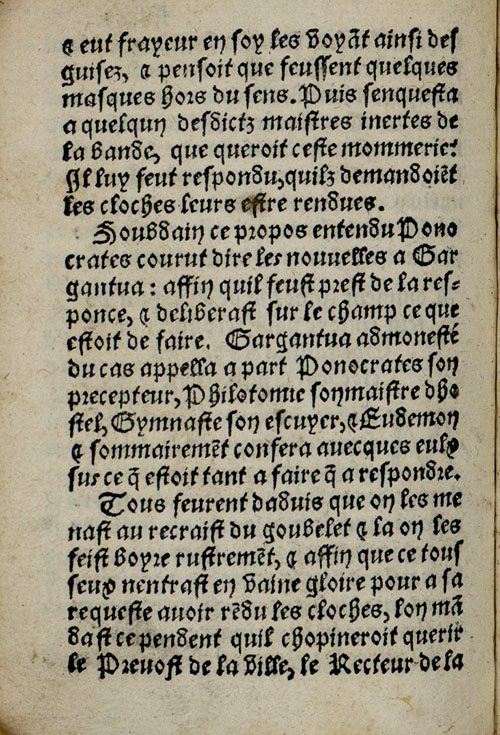 & eut frayeur en soy les voyãt ainsi des
guisez, & pensoit que feussent quelques
masques hors du sens. Puis senquesta
a quelqun desdictz maistres inertes de
la bande, que queroit ceste mommerie?
Il luy feut respondu, quilz demandoiẽt
les cloches leurs estre rendues.
Soubdain ce propos entendu Pono
crates courut dire les nouvelles a Gar
gantua: affin quil feust prest de la res-
ponce, & deliberast sur le champ ce que
estoit de faire. Gargantua admonesté
du cas appella a part Ponocrates son
precepteur, Philotomie son maistre dho
stel, Gymnaste son escuyer, & Eudemon
& sommairemẽt confera avecques eulx
sur ce q̃ estoit tant a faire q̃ a respondre.
Tous feurent dadvis que on les me
nast au recraist du goubelet & la on les
feist boyre rustremẽt, & affin que ce tous
seux nentrast en vaine gloire pour a sa
requeste avoir rẽdu les cloches, lon mã
dast ce pendent quil chopineroit querir
le Prevost de la ville, le Recteur de la